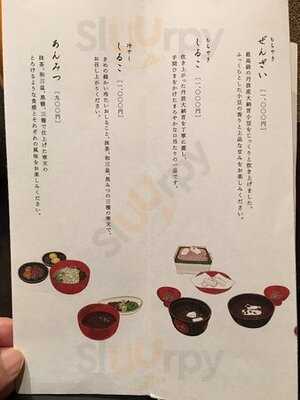 もちやき
ぜんざい [一、〇〇〇円]
最高級の丹波産大納言小豆をじっくりと炊き上げました。
ふっくらとした小豆の香りと上品な甘みをお楽しみください。
もちやき
しるこ [一、〇〇〇円]
炊き上がった丹波大納言を丁寧に漉し、
手間ひまをかけたまろやかな口当たりの一品です。
冷やし
しるこ [一、〇〇〇円]
きめの細かい冷たいおしること、抹茶、和三盆、黒みつの三種の寒天で、
お召し上がりください。
あんみつ [九〇〇円]
抹茶、和三盆、黒糖、三種で仕上げた寒天の
とろけるような食感とそれぞれの風味をお楽しみください。
Sluurpy